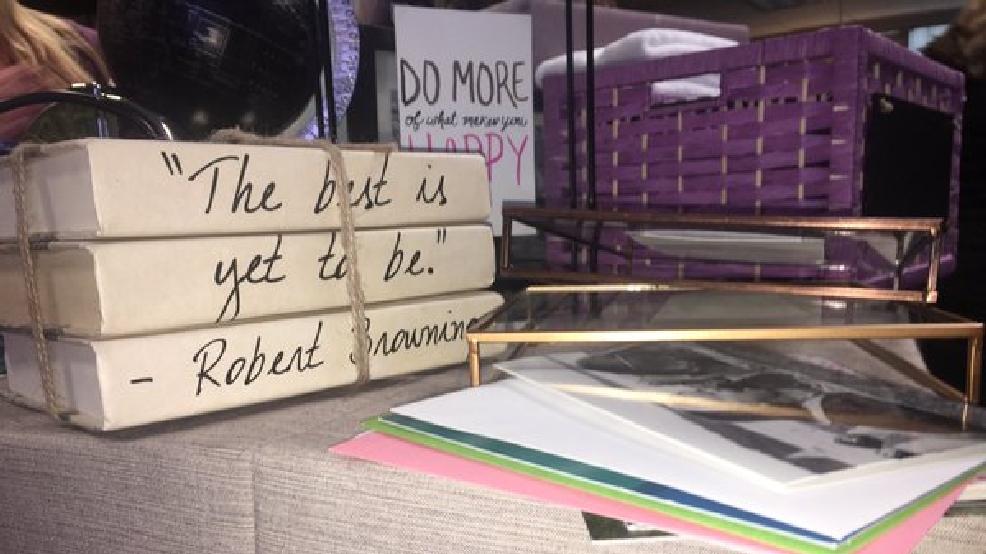 "The best is
yet to be."
- Robert Browning
DO MORE
of what makes you
HAPPY